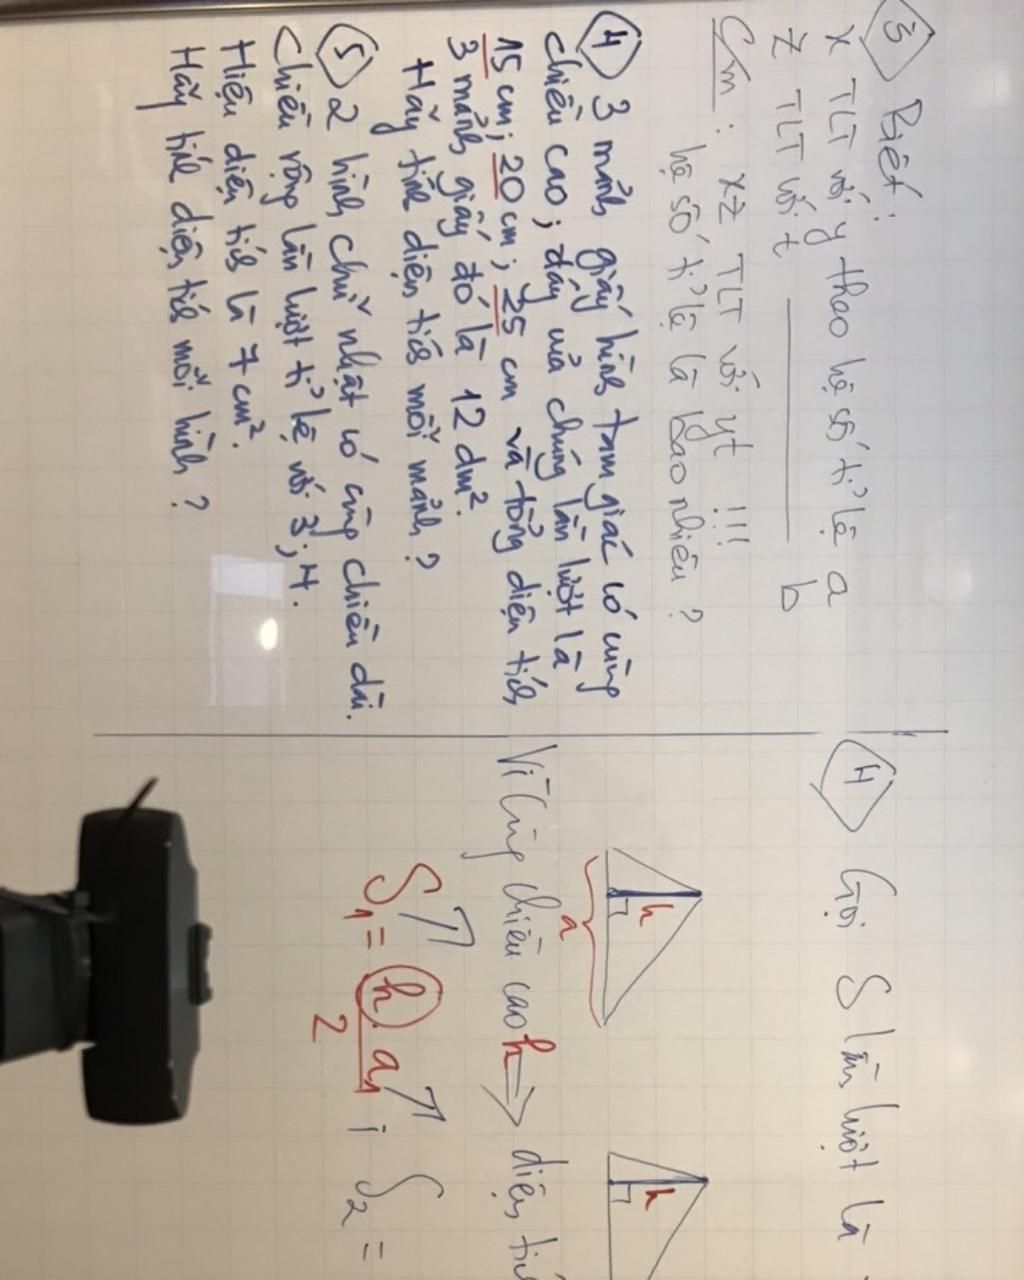 3 Biết:
x TLT với y theo hệ số tỉ lệ a
z TLT với t ———— b
Cm: xz TLT với yt !!!
hệ số tỉ lệ là bao nhiêu?
4 3 mảnh giấy hình tam giác có cùng
chiều cao; đáy của chúng lần lượt là
15 cm; 20 cm; 25 cm và tổng diện tích
3 mảnh giấy đó là 12 dm².
Hãy tính diện tích mỗi mảnh?
5 2 hình chữ nhật có cùng chiều dài.
Chiều rộng lần lượt tỉ lệ với 3; 4.
Hiệu diện tích là 7 cm².
Hãy tính diện tích mỗi hình?
4 Gọi S lần lượt là
h
a
h
Vì cùng chiều cao h ⇒ diện
S₁ = h.a₁/2 ; S₂ =